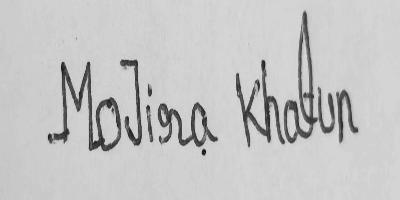 MoJira Khatun